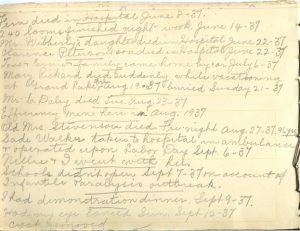 Fern died in Hospital June 8-37.
240 looms finished night work June 14-37
Mr. Wetherby's daughter died in Hospital June 22-37.
Clarence Peterson's son died in hospital June 22-37
family came home 1 year July 6-37
Mary Rickard died suddenly while vacationing
at Grand Rapids Aug 19-37 buried Sunday 21-37
Mr. C. Daley died Tue. Aug. 23-37
Efficiency Men here in Aug. 1937
Old Mrs. Stevenson died Fri night Aug 27-37. 96 yrs
Sade Welker taken to hospital in ambulance
operated upon Labor Day Sept. 6-37
Nellie & I went with her.
Schools didn't open Sept 7-37 on account of
Infantile Paralysis outbreak.
I had demonstration dinner. Sept 9-37.
Had my eye Sun. Sept 12-37
cyst removed